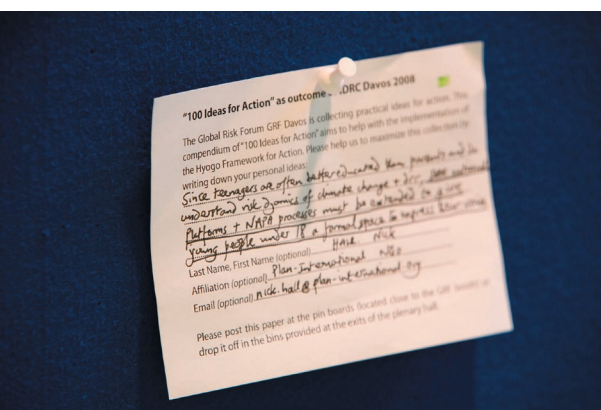 "100 Ideas for Action" as outcome DRC Davos 2008
The Global Risk Forum GRF Davos is collecting practical ideas for action. This
compendium of "100 Ideas for Action" aims to help with the implementation of
the Hyogo Framework for Action. Please help us to maximize this collection by
writing down your personal ideas:
Since teenagers are often better educated than parents and
understand risk dynamics of climate change + drr,
Platforms + NAPA processes must be extended to give
young people under 18 a formal space to express their
Last Name, First Name (optional) HALL Nick
Affiliation (optional) Plan-International NGO
Email (optional) nick.hall@plan-international.org
Please post this paper at the pin boards (located close to the GRF booth) or
drop it off in the bins provided at the exits of the plenary hall.